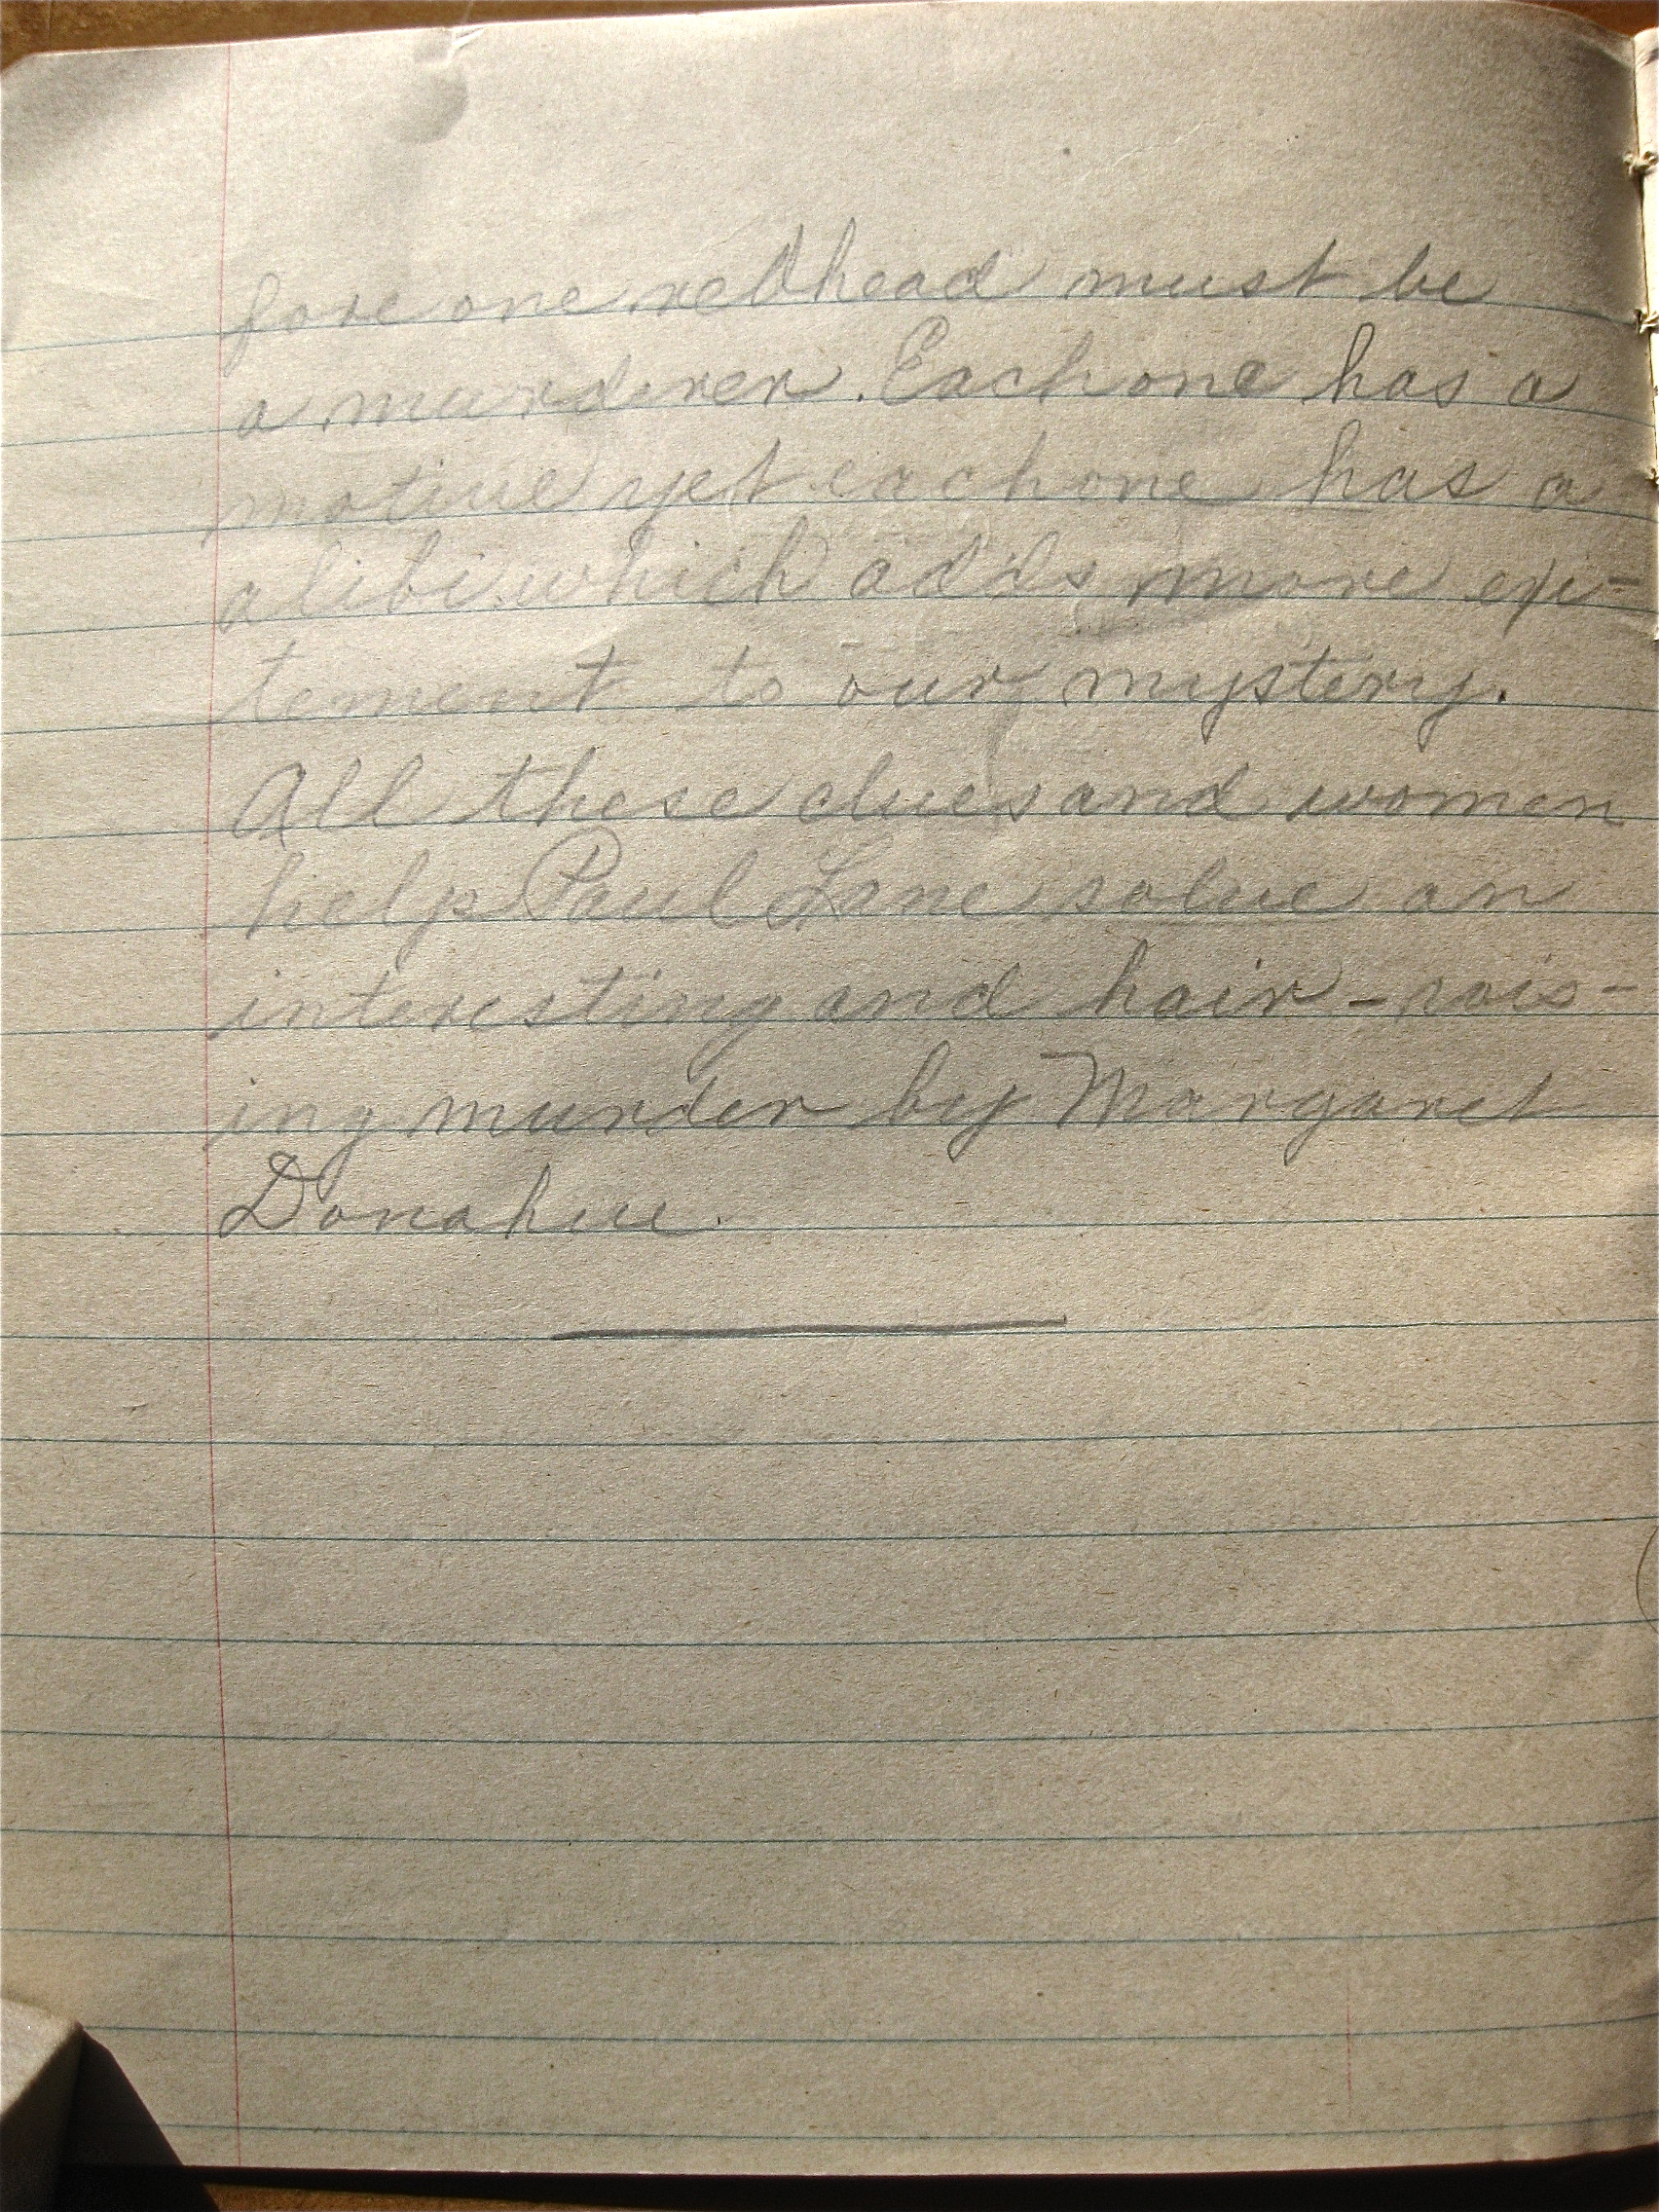 fore one redhead must be
a murderer. Each one has a
motive yet each one has a
alibi which adds more exi-
tement to our mystery.
All these clues and women
help Paul Lane solve an
interesting and hair-rais-
ing murder by Margaret
Donahue.